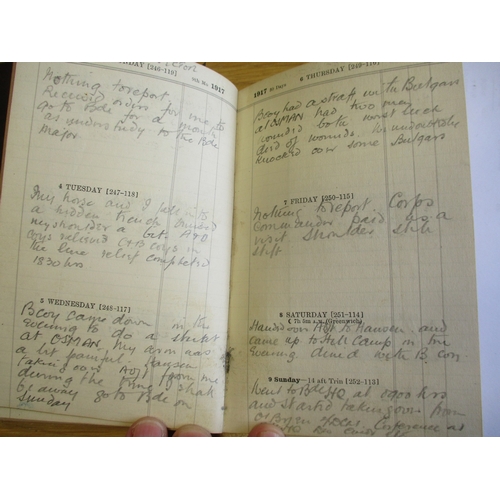 9th Mo 1917
DAY [246-119]
Nothing to report.
Received orders for me to
go to Bde for a month
as understudy to the Bde
Major
4 TUESDAY [247-118]
My horse and I fell into
a hidden trench bruised
my shoulder a bit A & D
coys relieved C & B coys in
the line relief completed
1830 hrs
5 WEDNESDAY [248-117]
B coy came down in the
evening to do a
at OSMAN, my arm was
a bit painful.
taking over Adjt from me
during the time I shall
be away go to Bde on
Sunday
1917 30 Days
6 THURSDAY [249-116]
B coy had a strafe with Bulgars
at OSMAN had two men
wounded both worst luck
died of wounds. We undoubtedly
knocked over some Bulgars
7 FRIDAY [250-115]
Nothing to report. Corps
Commander paid us a
visit shoulder still
stiff
8 SATURDAY [251-114]
7h 5m a.m. (Greenwich)
Handed over Adjt to Hansen and
came up to Camp in the
evening dined with B coy
9 Sunday—14 aft Trin [252-113]
Went to Bde HQ at 0900 hrs
and started taking over from
Conference at